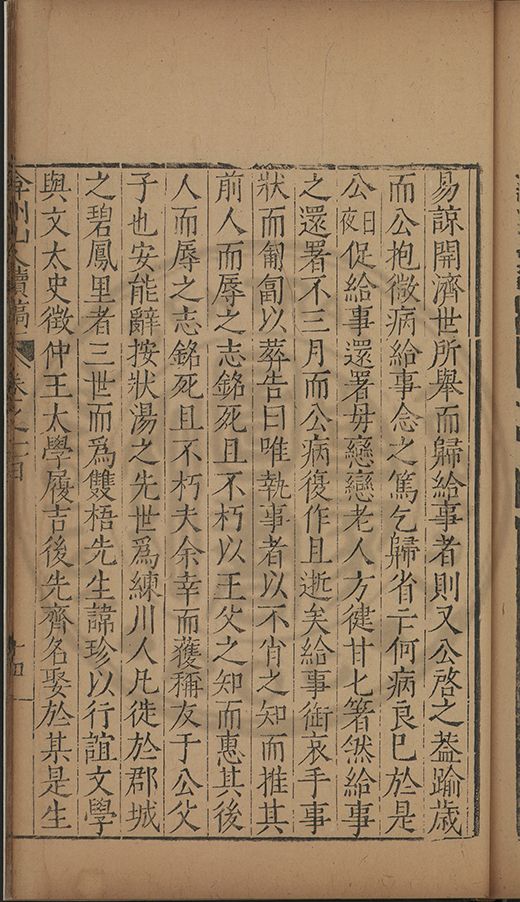 易諒開濟世所舉而歸給事者則又公啓之蓋踰歲
而公抱微病給事念之篤乞歸省亡何病良已於是
公日夜促給事還署毋戀戀老人方健甘匕箸然給事
之還署不三月而公病復作且逝矣給事銜哀手事
狀而匍匐以葬告曰唯執事者以不肖之知而推其
前人而辱之志銘死且不朽以王父之知而惠其後
人而辱之志銘死且不朽夫余幸而獲稱友于公父
子也安能辭按狀湯之先世爲練川人凡徙於郡城
之碧鳳里者三世而爲雙梧先生諱珍以行誼文學
與文太史徵仲王太學履吉後先齊名娶於某是生
弇州山人續稿 卷之一百 十四